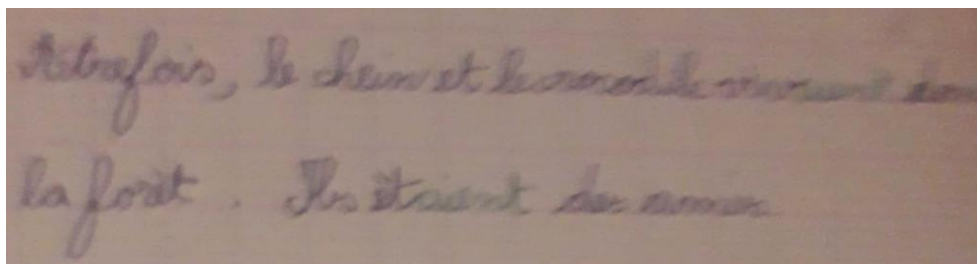 Autrefois, le chein et le vivaient dans
la forêt. Ils étaient des amies